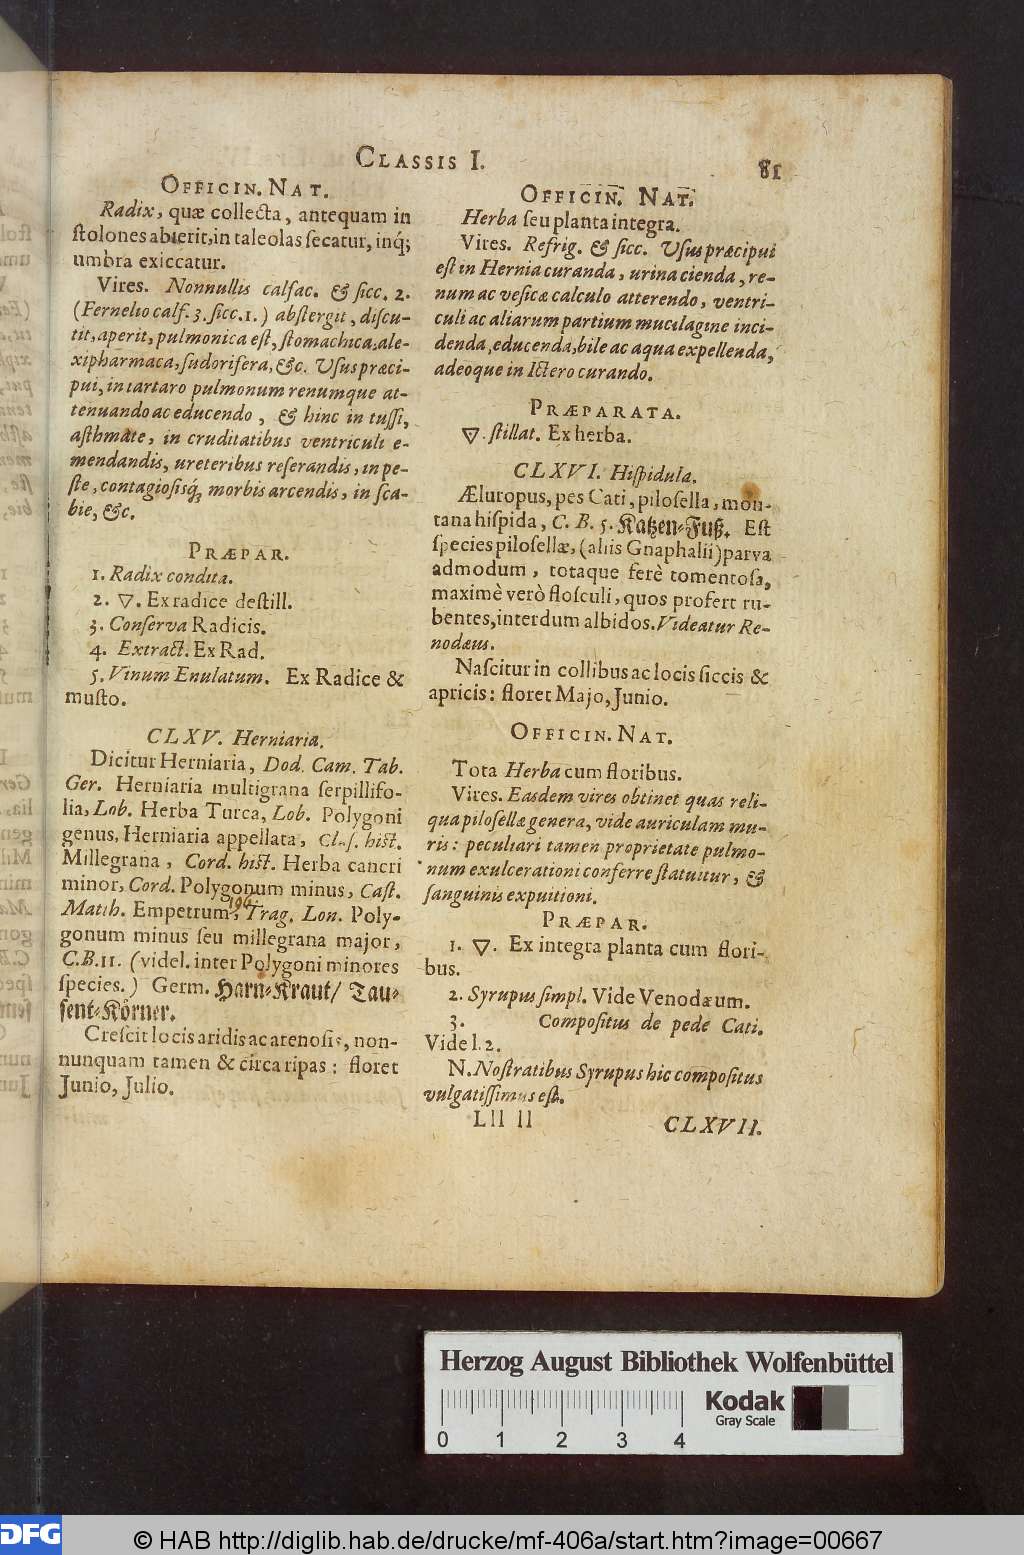 CLASSIS I.
81
OFFICIN. NAT.
Radix, quæ collecta, antequam in
ſtolones abierit, in taleolas ſecatur, inq́;
umbra exiccatur.
Vires. Nonnullis calfac. & ſicc. 2.
(Fernelio calf. 3. ſicc. 1.) abſtergit, diſcu-
tit, aperit, pulmonica eſt, ſtomachica, ale-
xipharmaca, ſudorifera, &c. Uſus præci-
pui, in tartaro pulmonum renumque at-
tenuando ac educendo, & hinc in tuſſi,
aſthmate, in cruditatibus ventriculi e-
mendandis, ureteribus reſerandis, in pe-
ſte, contagioſisq́; morbis arcendis, in ſca-
bie, &c.
PRÆPAR.
1. Radix condita.
2. ▽. Ex radice deſtill.
3. Conſerva Radicis.
4. Extract. Ex Rad.
5. Vinum Enulatum. Ex Radice &
muſto.
CLXV. Herniaria.
Dicitur Herniaria, Dod. Cam. Tab.
Ger. Herniaria multigrana ſerpillifo-
lia, Lob. Herba Turca, Lob. Polygoni
genus, Herniaria appellata, Cluſ. hiſt.
Millegrana, Cord. hiſt. Herba cancri
minor, Cord. Polygonum minus, Caſt.
Matth. Empetrum, Trag. Lon. Poly-
gonum minus ſeu millegrana major,
C.B. 11. (videl. inter Polygoni minores
ſpecies.) Germ. Harn-Kraut/ Tau-
ſent-Körner.
Creſcit locis aridis ac arenoſis, non-
nunquam tamen & circa ripas: floret
Junio, Julio.
OFFICIN. NAT.
Herba ſeu planta integra.
Vires. Refrig. & ſicc. Uſus præcipui
eſt in Hernia curanda, urina cienda, re-
num ac veſicæ calculo atterendo, ventri-
culi ac aliarum partium mucilagine inci-
denda, educenda, bile ac aqua expellenda,
adeoque in Ictero curando.
PRÆPARATA.
▽. ſtillat. Ex herba.
CLXVI. Hiſpidula.
Æluropus, pes Cati, piloſella, mon-
tana hiſpida, C. B. 5. Katzen-Fuß. Eſt
ſpecies piloſellæ, (aliis Gnaphalii) parva
admodum, totaque ferè tomentoſa,
maximè verò floſculi, quos profert ru-
bentes, interdum albidos. Videatur Re-
nodæus.
Naſcitur in collibus ac locis ſiccis &
apricis: floret Majo, Junio.
OFFICIN. NAT.
Tota Herba cum floribus.
Vires. Easdem vires obtinet quas reli-
qua piloſellæ genera, vide auriculam mu-
ris: peculiari tamen proprietate pulmo-
num exulcerationi conferre ſtatuitur, &
ſanguinis expuitioni.
PRÆPAR.
1. ▽. Ex integra planta cum flori-
bus.
2. Syrupus ſimpl. Vide Venodæum.
3. Compoſitus de pede Cati.
Vide l. 2.
N. Noſtratibus Syrupus hic compoſitus
vulgatiſſimus eſt.
Lll ll
CLXVII.
Herzog August Bibliothek Wolfenbüttel
Kodak
Gray Scale
0 1 2 3 4
DFG
© HAB http://diglib.hab.de/drucke/mf-406a/start.htm?image=00667